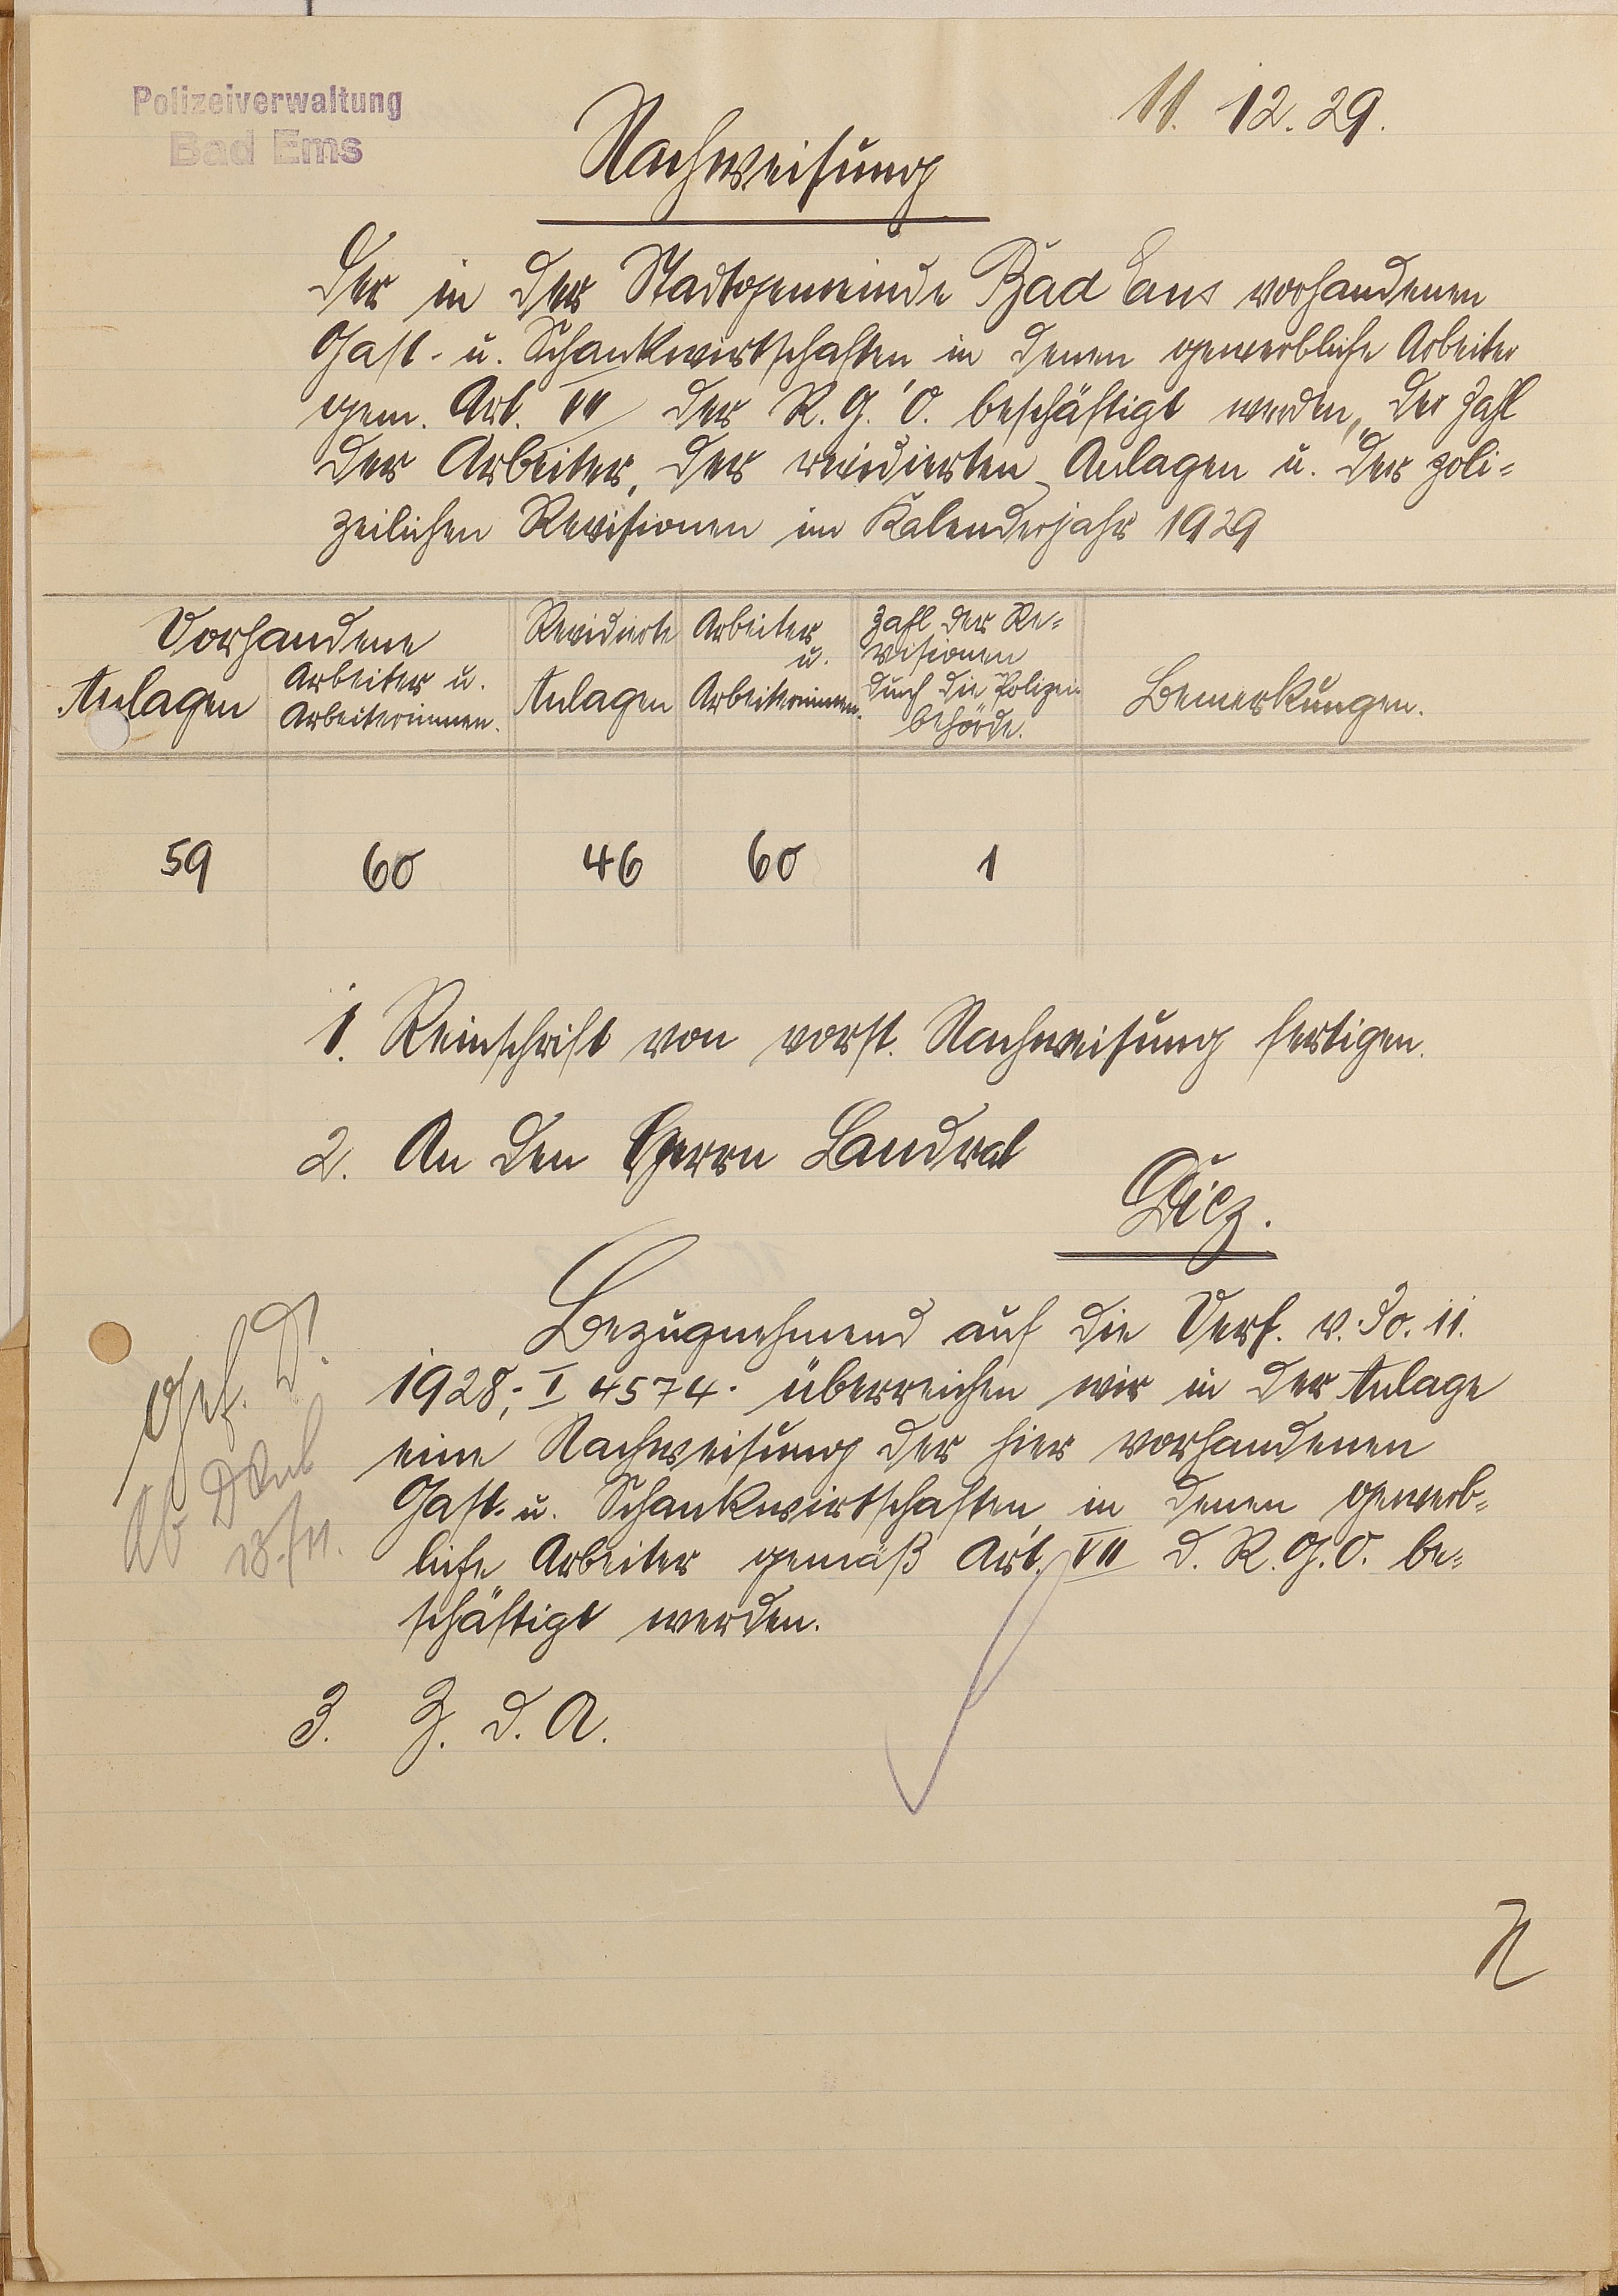 Polizeiverwaltung
Bad Ems
11. 12. 29.
Nachweisung
der in der Stadtgemeinde Bad Ems vorhandenen
Gast- u. Schankwirtschaften in denen gewerbliche Arbeiter
gem. Art. VII der R. G. O. beschäftigt werden, der Zahl
der Arbeiter, der revidierten Anlagen u. der poli=
zeilichen Revisionen im Kalenderjahr 1929
Vorhandene
Anlagen
Arbeiter u.
Arbeiterinnen.
Revidierte
Anlagen
Arbeiter
u.
Arbeiterinnen.
Zahl der Re=
visionen
durch die Polizei-
behörde.
Bemerkungen.
59 60 46 60 1
1. Reinschrift von vorst. Nachweisung fertigen.
2. An den Herrn Landrat
Diez.
Bezugnehmend auf die Verf. v. 30. 11.
1928,- I 4574. überreichen wir in der Anlage
eine Nachweisung der hier vorhandenen
Gast- u. Schankwirtschaften, in denen gewerb=
liche Arbeiter gemäß Art. VII d. R. G. O. be=
schäftigt werden.
3. Z. d. A.
Gef. D!
Ab